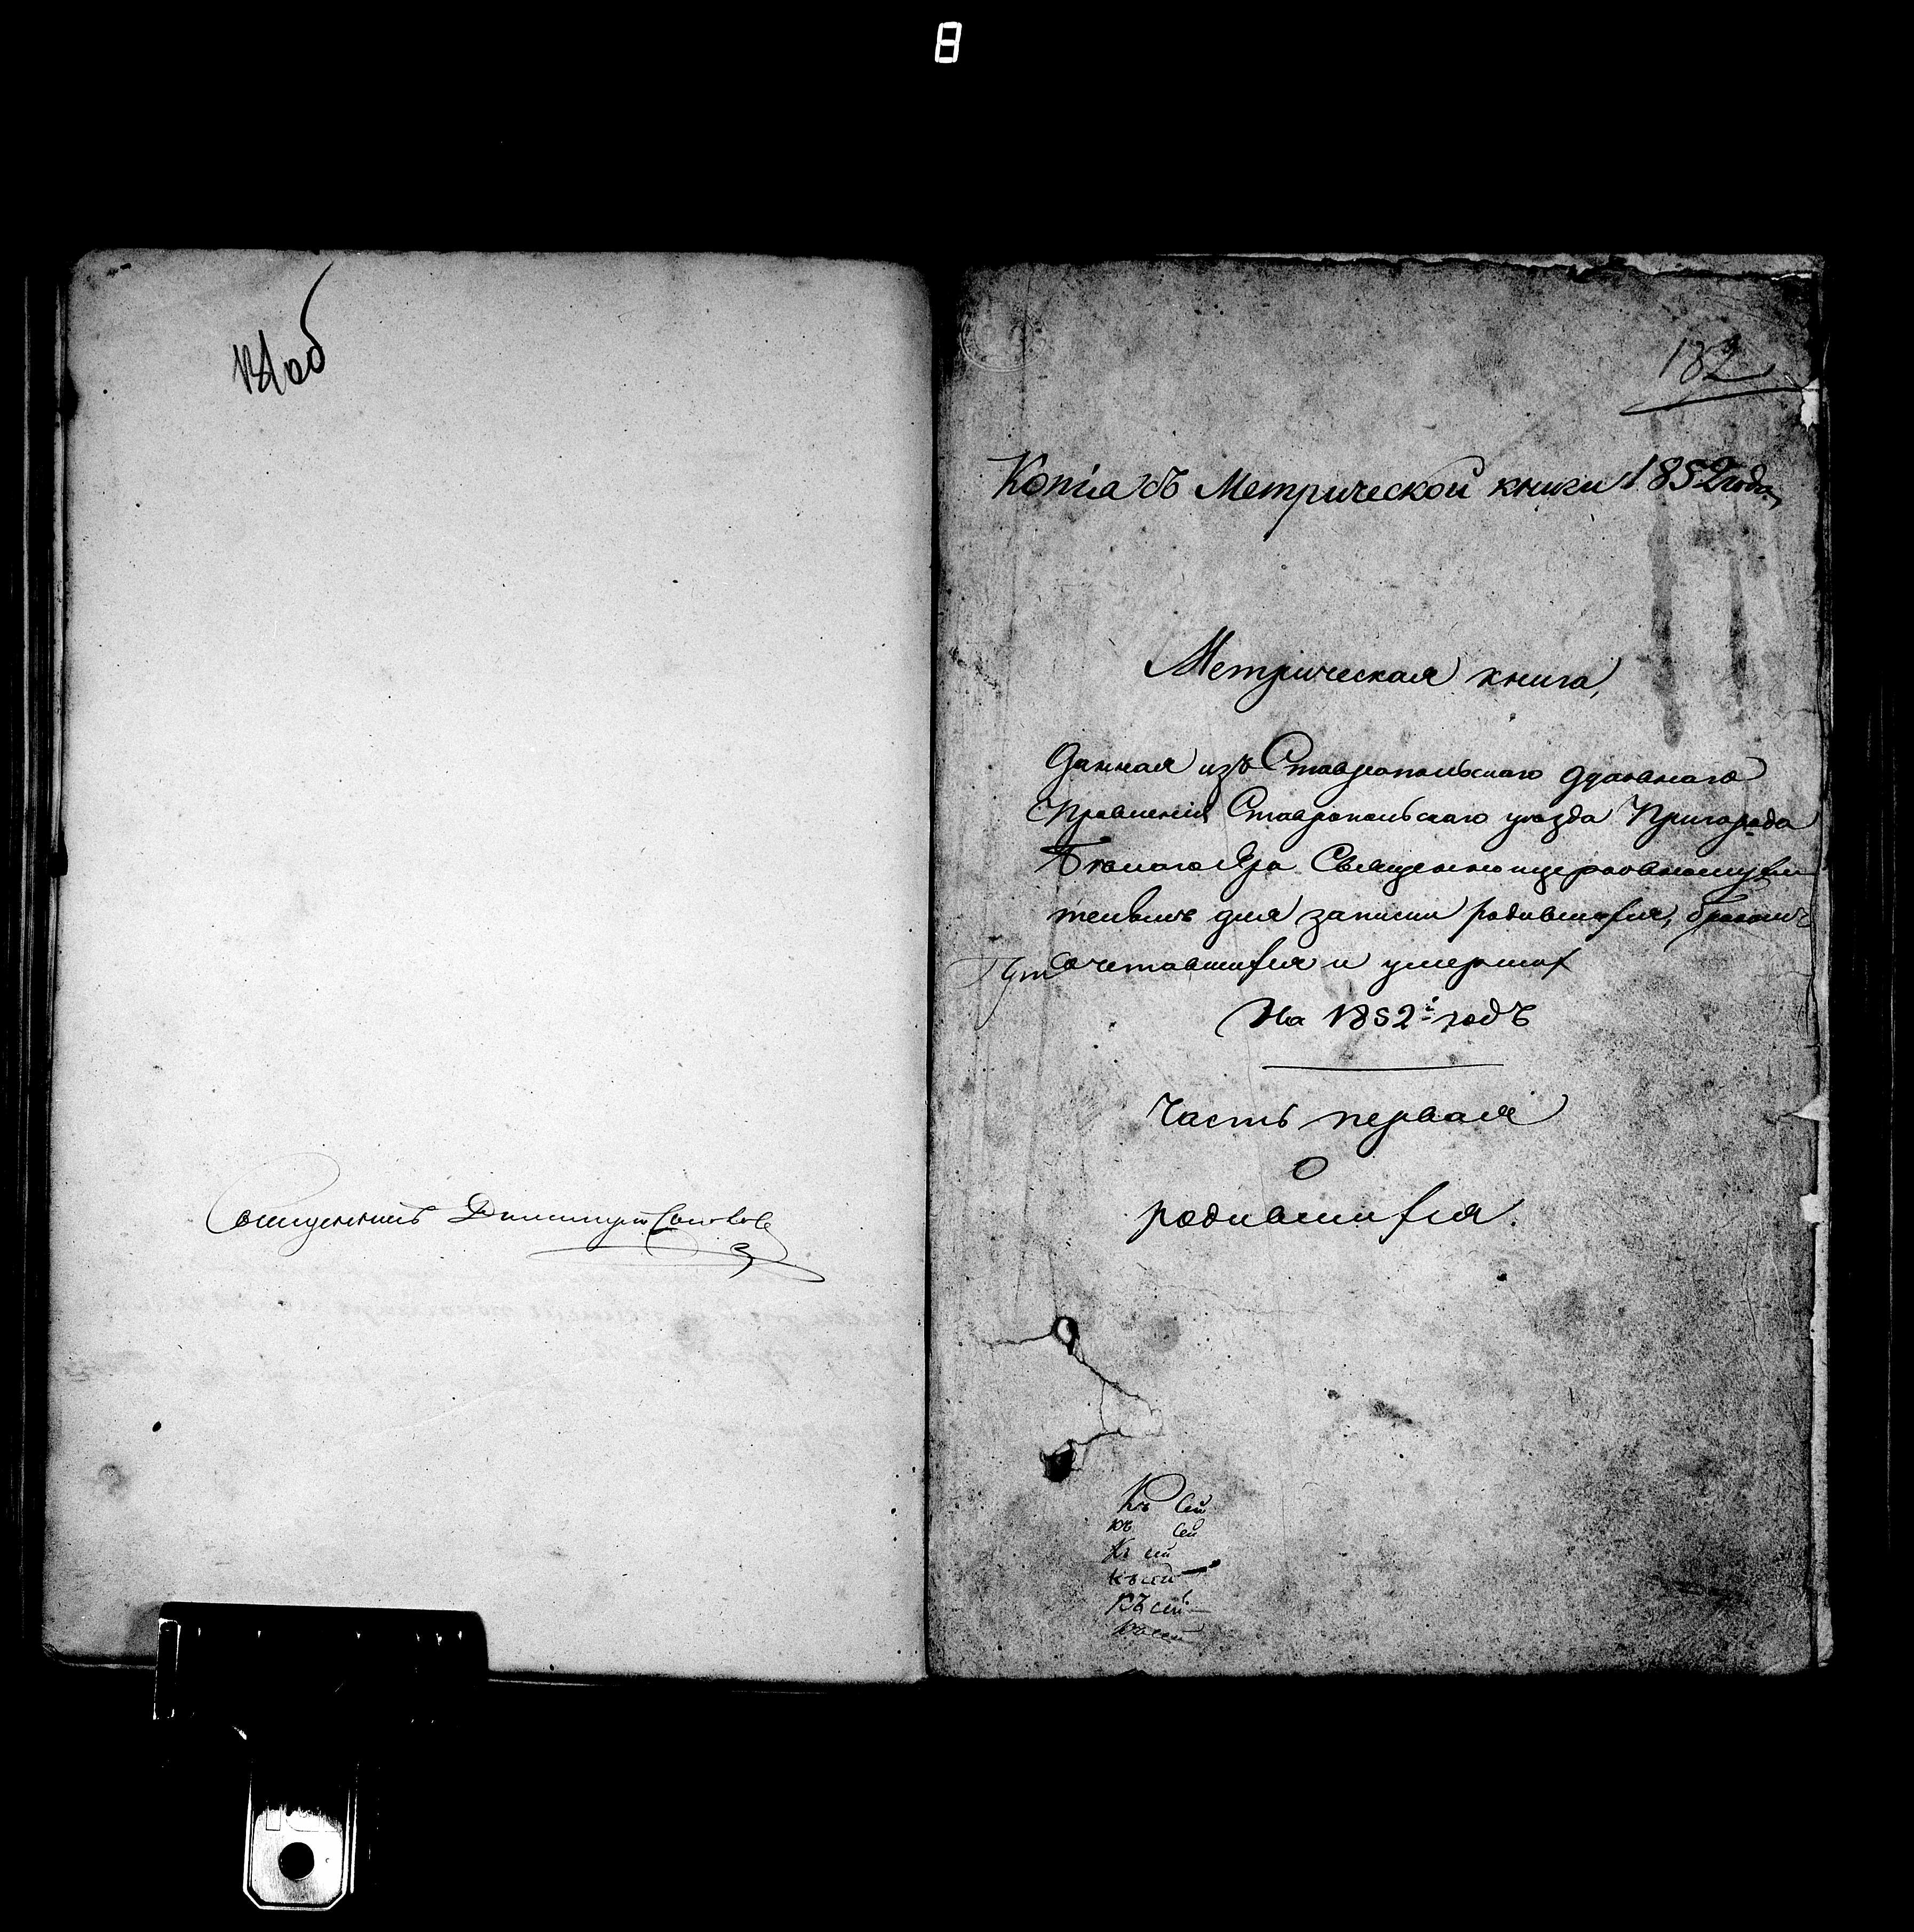 8
Священникъ Димитрий
182
Копiя съ Метрической книги 1852 года,
Метрическая книга,
данная изъ Ставропольскаго духовнаго
Правленiя Ставропольскаго уезда Пригорода
Белаго Яра Священноцерковнослужи
телямъ для записки родившихся, бракомъ
сочетавшихся и умершихъ
На 1852й годъ
Часть первая
О
родившихся.
Къ Сей
къ Сей
Къ сей
къ сей
Къ сей
къ сей